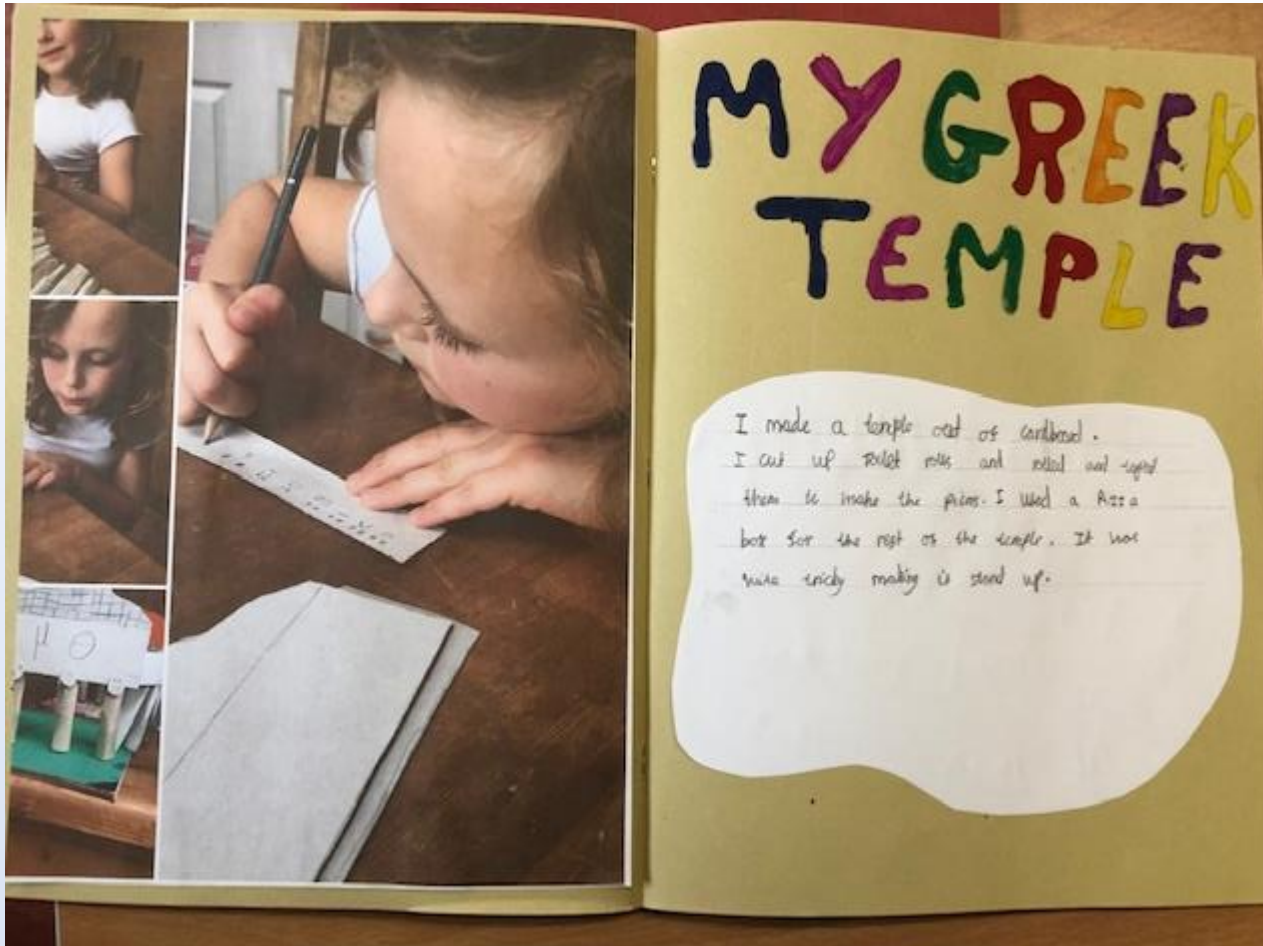 MY GREEK
TEMPLE
I made a temple out of cardboard.
I cut up toilet rolls and rolled and taped
them to make the pillars. I used a Pizza
box for the rest of the temple. It was
tricky making is stand up.
μ Θ